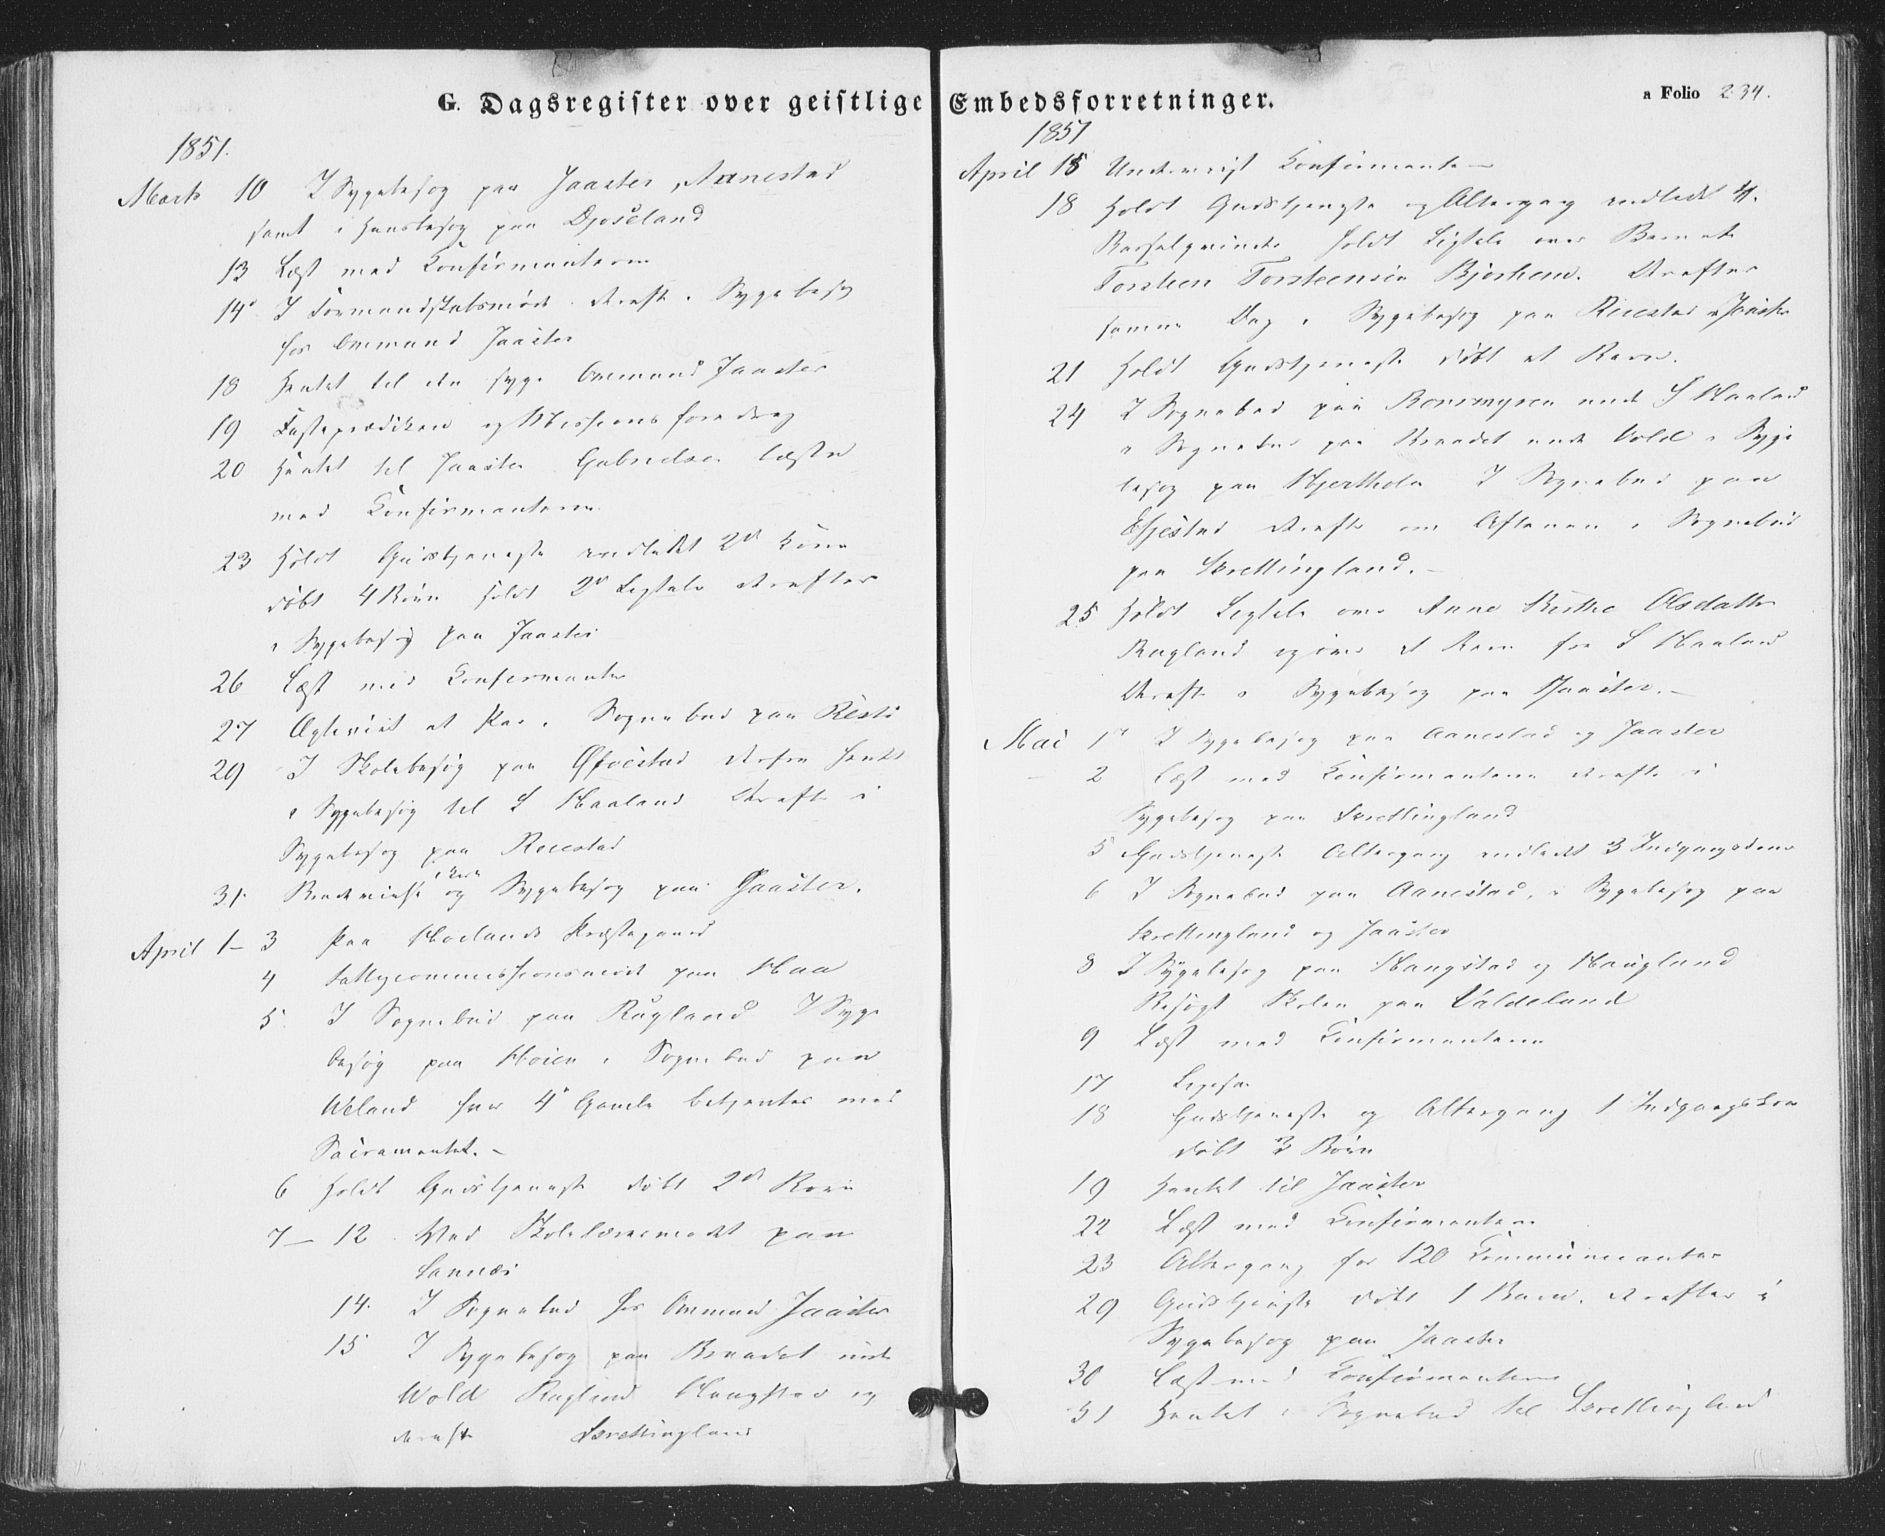 G. Dagsregister over geistlige Embedsforretninger.
a Folio 234.
1851.
Marts 10 I Sygebesøg paa Jaaster, Aanestad
samt i Huusbesøg paa Djøseland
13 Læst med Confirmanterne
14de I Formandskabsmøde derefter i Sygebesøg
hos Ommund Jaaster
18 Hentet til den syge Ommund Jaaster
19 Fasteprædiken og Missionsforedrag
20 Hentet til Jaaster Gabrielsen læste
med Confirmanterne
23 Holdt Gudstjeneste indledet 2de Koner
døbt 4 Børn holdt 2de Ligtaler derefter
i Sygebesøg paa Jaaster
26 Læst med Confirmanter
27 Ægteviet et Par i Sognebud paa
29 I Skolebesøg paa derfra hentet
i Sygebesøg til S Haaland derefter i
Sygebesøg paa Reiestad
31 og Sygebesøg paa Jaaster.
April 1–3 Paa Høilands Præstegaard
4 paa Haa
5 I Sognebud paa Rugland I Syge
besøg paa Høien i Sognebud paa
Weland hvor 4 Gamle betjentes med
Sacramentet.–
6 Holdt Gudstjeneste døbt 2de Børn
7–12 Ved Skolelærermødet paa
14. I Sognebud hos Ommund Jaaster
15 I Sygebesøg paa Braadet under
Wold Rugland Haugstad og
derefter Skrettingland
1851
April 15 Underviist Confirmanterne
18 Holdt Gudstjeneste og Altergang indledet 4.
Barselqvinder holdt Ligtale over Barnet
Torsteen Torsteensen Bjorhem. Derefter
samme Dag i Sygebesøg paa Reiestad Jaaster
21 Holdt Gudstjeneste døbt et Barn.
24 I Sognebud paa under S Haaland
i Sognebud paa Braadet under Vold i Syge
besøg paa I Sognebud paa
derefter om Aftenen i Sognebud
paa Skrettingland.–
25 Holdt Ligtale over Anne Olsdatter
Rugland og over et Barn fra S Haaland
Derefter i Sygebesøg paa Jaaster.–
Mai 1 I Sygebesøg paa Aanestad og Jaaster
2 Læst med Confirmanterne derefter i
Sygebesøg paa Skrettingland
5 Gudstjeneste Altergang indledet 3 Indgangskoner
6 I Sognebud paa Aanestad, i Sygebesøg paa
Skrettingland og Jaaster
8 I Sygebesøg paa Haugstad og Haugland
Besøgt Skolen paa Valdeland
9 Læst med Confirmanterne
17
18 Gudstjeneste og Altergang 1 Indgangskone
døbt 3 Børn
19 Hentet til Jaaster
22 Læst med Confirmanterne
23 Altergang for 120 Communicanter
29 Gudstjeneste døbt 1 Barn. derefter i
Sygebesøg paa Jaaster
30 Læst med Confirmanterne
31 Hentet i Sognebud til Skrettingland